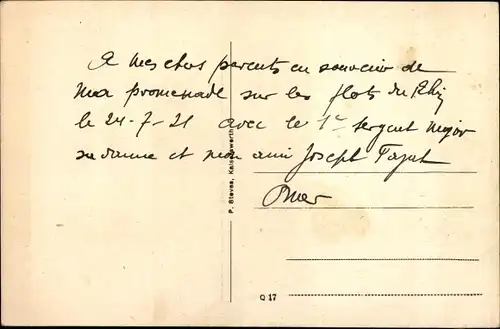 A mes chers parents en souvenir de
ma promenade sur les flots du Rhin
le 24-7-21 avec le 1er sergent major
sa dame et mon ami Joseph
P. Steves, Kaiserswerth
Q 17